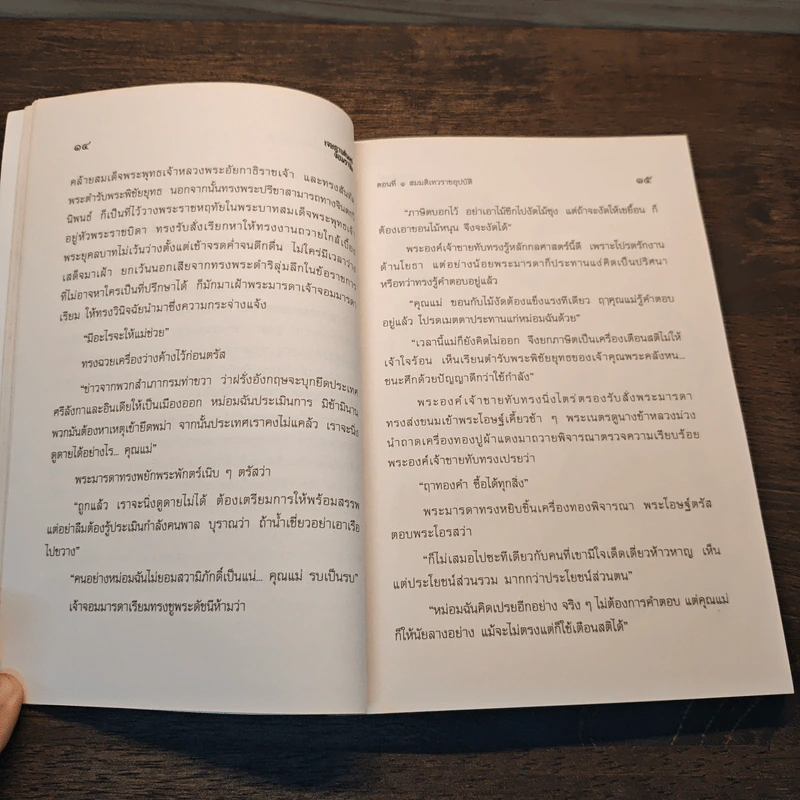 ๑๔
คล้ายสมเด็จพระพุทธเจ้าหลวงพระอัยกาธิราชเจ้า และทรงสันทัด
พระตำรับพระพิชัยยุทธ นอกจากนั้นทรงพระปรีชาสามารถทางจินตกวี
นิพนธ์ ก็เป็นที่ไว้วางพระราชหฤทัยในพระบาทสมเด็จพระพุทธเจ้า
อยู่หัวพระราชบิดา ทรงรับสั่งเรียกหาให้ทรงงานถวายใกล้เบื้อง
พระยุคลบาทไม่เว้นว่างตั้งแต่เช้าจรดค่ำจนดึกดื่น ไม่ใคร่มีเวลาว่าง
เสด็จมาเฝ้า ยกเว้นนอกเสียจากทรงพระดำริลุ่มลึกในข้อราชการ
ที่ไม่อาจหาใครเป็นที่ปรึกษาได้ ก็มักมาเฝ้าพระมารดาเจ้าจอมมารดา
เรียม ให้ทรงวินิจฉัยนำมาซึ่งความกระจ่างแจ้ง
“มีอะไรจะให้แม่ช่วย”
ทรงฉวยเครื่องว่างค้างไว้ก่อนตรัส
“ข่าวจากพวกสำเภากรมท่าขวา ว่าฝรั่งอังกฤษจะบุกยึดประเทศ
ศรีลังกาและอินเดียให้เป็นเมืองออก หม่อมฉันประเมินการ มิช้ามินาน
พวกมันต้องหาเหตุเข้ายึดพม่า จากนั้นประเทศเราคงไม่แคล้ว เราจะนิ่ง
ดูดายได้อย่างไร... คุณแม่”
พระมารดาทรงพยักพระพักตร์เนิบ ๆ ตรัสว่า
“ถูกแล้ว เราจะนิ่งดูดายไม่ได้ ต้องเตรียมการให้พร้อมสรรพ
แต่อย่าลืมต้องรู้ประเมินกำลังคนพาล บุราณว่า ถ้าน้ำเชี่ยวอย่าเอาเรือ
ไปขวาง”
“คนอย่างหม่อมฉันไม่ยอมสวามิภักดิ์เป็นแน่... คุณแม่ รบเป็นรบ”
เจ้าจอมมารดาเรียมทรงชูพระดัชนีห้ามว่า
ตอนที่ ๑ สมมติเทวราชอุปบัติ
๑๕
“ภาษิตบอกไว้ อย่าเอาไม้ซีกไปงัดไม้ซุง แต่ถ้าจะงัดให้เขยื้อน ก็
ต้องเอาขอนไม้หนุน จึงจะงัดได้”
พระองค์เจ้าชายทับทรงรู้หลักกลศาสตร์นี้ดี เพราะโปรดรักงาน
ด้านโยธา แต่อย่างน้อยพระมารดาก็ประทานแง่งคิดเป็นปริศนา
หรือทว่าทรงรู้คำตอบอยู่แล้ว
“คุณแม่ ขอนกับไม้งัดต้องแข็งแรงทีเดียว ฤๅคุณแม่รู้คำตอบ
อยู่แล้ว โปรดเมตตาประทานแก่หม่อมฉันด้วย”
“เวลานี้แม่ก็ยังคิดไม่ออก จึงยกภาษิตเป็นเครื่องเตือนสติไม่ให้
เจ้าใจร้อน เห็นเรียนตำรับพระพิชัยยุทธของเจ้าคุณพระคลังหน...
ชนะศึกด้วยปัญญาดีกว่าใช้กำลัง”
พระองค์เจ้าชายทับทรงนิ่งไตร่ตรองรับสั่งพระมารดา
ทรงส่งขนมเข้าพระโอษฐ์เคี้ยวช้า ๆ พระเนตรดูนางข้าหลวงม่วง
นำถาดเครื่องทองปูผ้าแดงมาถวายพิจารณาตรวจความเรียบร้อย
พระองค์เจ้าชายทับทรงเปรยว่า
“ฤๅทองคำ ซื้อได้ทุกสิ่ง”
พระมารดาทรงหยิบชิ้นเครื่องทองพิจารณา พระโอษฐ์ตรัส
ตอบพระโอรสว่า
“ก็ไม่เสมอไปซะทีเดียวกับคนที่เขามีใจเด็ดเดี่ยวห้าวหาญ เห็น
แต่ประโยชน์ส่วนรวม มากกว่าประโยชน์ส่วนตน”
“หม่อมฉันคิดเปรยอีกอย่าง จริง ๆ ไม่ต้องการคำตอบ แต่คุณแม่
ก็ให้นัยลางอย่าง แม้จะไม่ตรงแต่ก็ใช้เตือนสติได้”